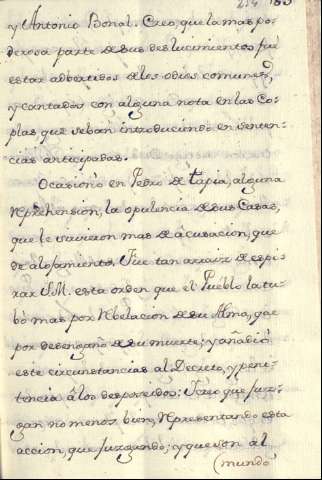 214 183
y Antonio Bonal. Creo, que la mas po-
derosa parte de sus deslucimientos fue
estar advertidos a los odios comunes,
y cantados con alguna nota en las Co-
plas que se ban introduciendo en senten-
cias anticipadas.
Ocasionó en Pedro de tapia, alguna
reprehension, la opulencia de sus Casas,
que le sirvieron mas de acusacion, que
de alojamiento. Fue tan a raiz de espi-
rar S.M. esta orden que el Pueblo la tu-
bo mas por rebelacion de su Alma, que
por desengaño de su muerte; y añadió
este circunstancias al Decreto, y peni-
tencia â los desposeidos: Creo que juz-
gan no menos bien, representando esta
accion, que juzgando; y que son al
(mundo